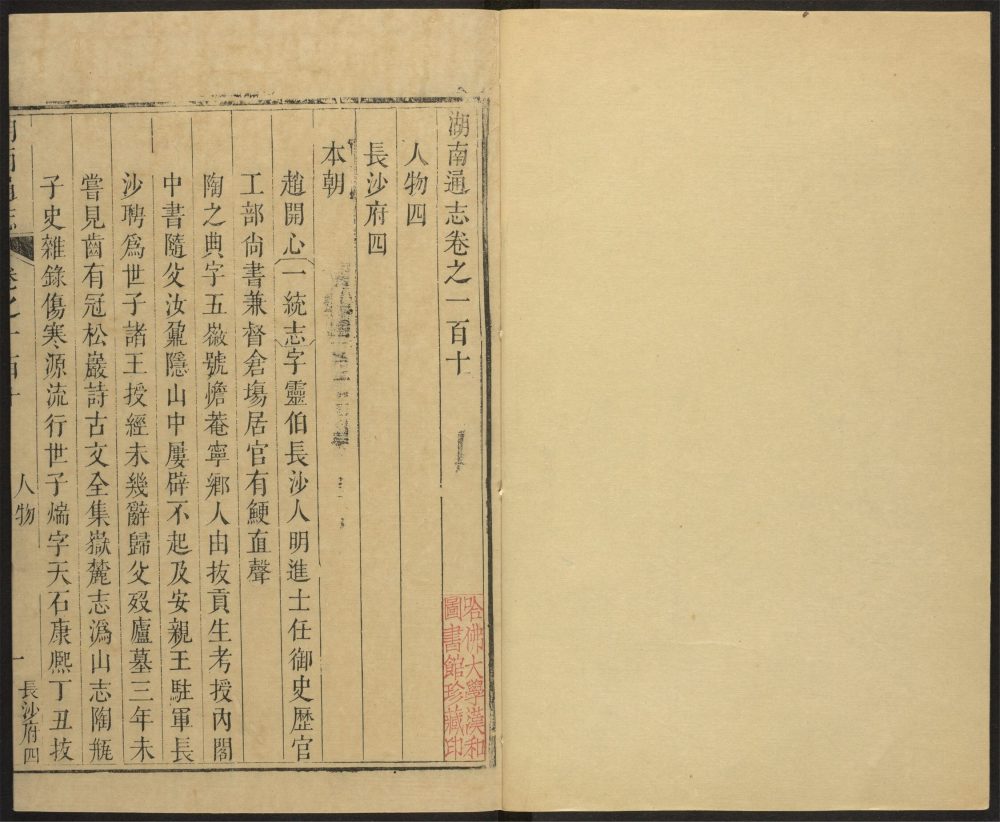 湖南通志卷之一百十
人物四
長沙府四
本朝
趙開心一統志字靈伯長沙人明進士任御史歷官
工部尚書兼督倉塲居官有鯁直聲
陶之典字五徽號憺菴寧鄉人由拔貢生考授內閣
中書隨父汝鼐隱山中屢辟不起及安親王駐軍長
沙聘爲世子諸王授經未幾辭歸父歿廬墓三年未
嘗見齒有冠松巖詩古文全集嶽麓志潙山志陶瓶
子史雜錄傷寒源流行世子煓字天石康熙丁丑拔
人物
一
長沙府四
哈佛大學漢和
圖書館珍藏印